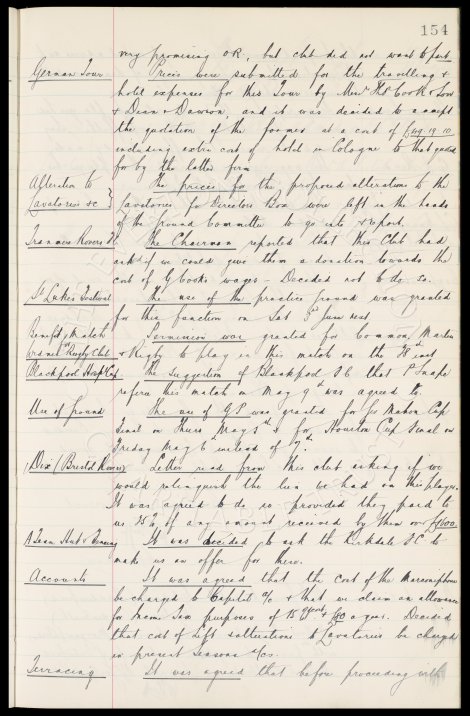 154
very promising OR, but club did not want to part
German Tour Prices were submitted for the travelling &
hotel expenses for this Tour by Messrs Thos Cook & Son
& Dean & Dawson, and it was decided to accept
the quotation of the former at a cost of
including extra cost of hotel in Cologne to that quoted
for by the latter firm
Alteration to The prices for the proposed alterations to the
Lavatories &c Lavatories for Directors Box were left in the hands
of the Ground Committee to go into & report.
Tranmere Rovers The Chairman reported that this Club had
asked if we could give them a donation towards the
cost of G Cooks wages - Decided not to do so.
St Lukes Festival The use of the practice ground was granted
for this function on Sat 3rd June next
Benefit Match Permission was granted for Common, Martin
& Rigby to play in this match on the inst
Blackpool The suggestion of Blackpool FC that P Snape
referee this match on May 9th was agreed to.
Use of Ground The use of GP was granted for Cup
Final on Thurs May & for Houston Cup Final on
Friday May 6th instead of 7th.
Dix (Bristol Rovers) Letter read from this club asking if we
would relinquish the lien we had on this player.
It was agreed to do so provided they paid to
us of any amount received by them over
It was decided to ask the Kirkdale FC to
make us an offer for these.
Accounts It was agreed that the cost of the
be charged to Capital a/c & that we claim an allowance
for Income Tax purposes of a year. Decided
that cost of alterations to Lavatories be charged
in present Seasons a/cs.
Terracing It was agreed that before proceeding with